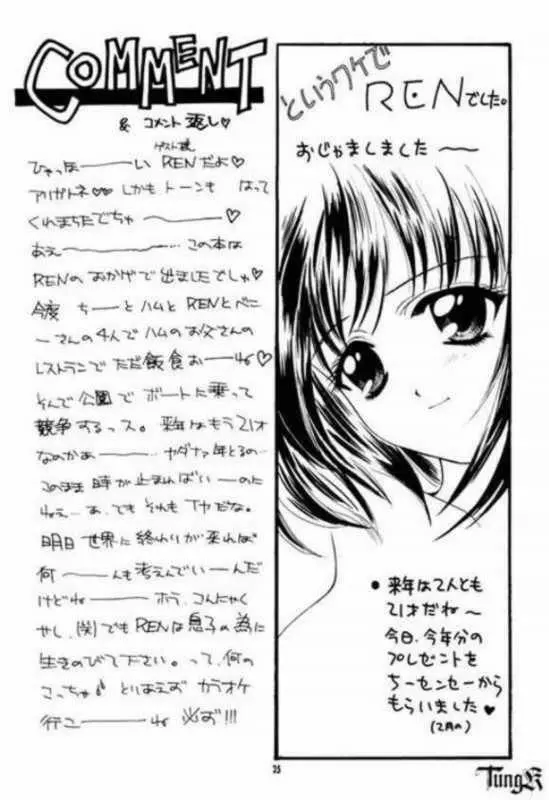 COMMENT
& コメント 返し♡
ゲスト様
ひゃっほーーーい RENだよ♡
アリガトネ♡♡ しかも トーンも はって
くれまちたでちゃ ーーーー ♡
あぇーーーー… この本は
RENの おかげで出ましたでしゅ♡
今度 ちーとハムと RENとべに
ーさんの4人で ハムのお父さんの
レストランで ただ飯食おーーね♡
そんで公園で ボートに乗って
競争するっス。来年はもう21才
なのかあーーー ヤダナァ年とるの…
このまま 時が止まればいーのに
ねぇ… あ、でも それも イヤだな。
明日 世界に終わりが来れば
何ーーんも考えんでいーーんだ
けどねーーー ホラ、コンにゃく
やし、(笑)でもRENは息子の為に
生きのびて下さい。って、何の
こっちゃ♪ とりあえず カラオケ
行こーーーーね 必ず!!!
というワケで
RENでした。
おじゃましました 〜〜
• 来年は2人とも
21才だね〜
今日、今年分の
プレゼントを
ちーセンセーから
もらいました♥
(2月の)
25
TungK